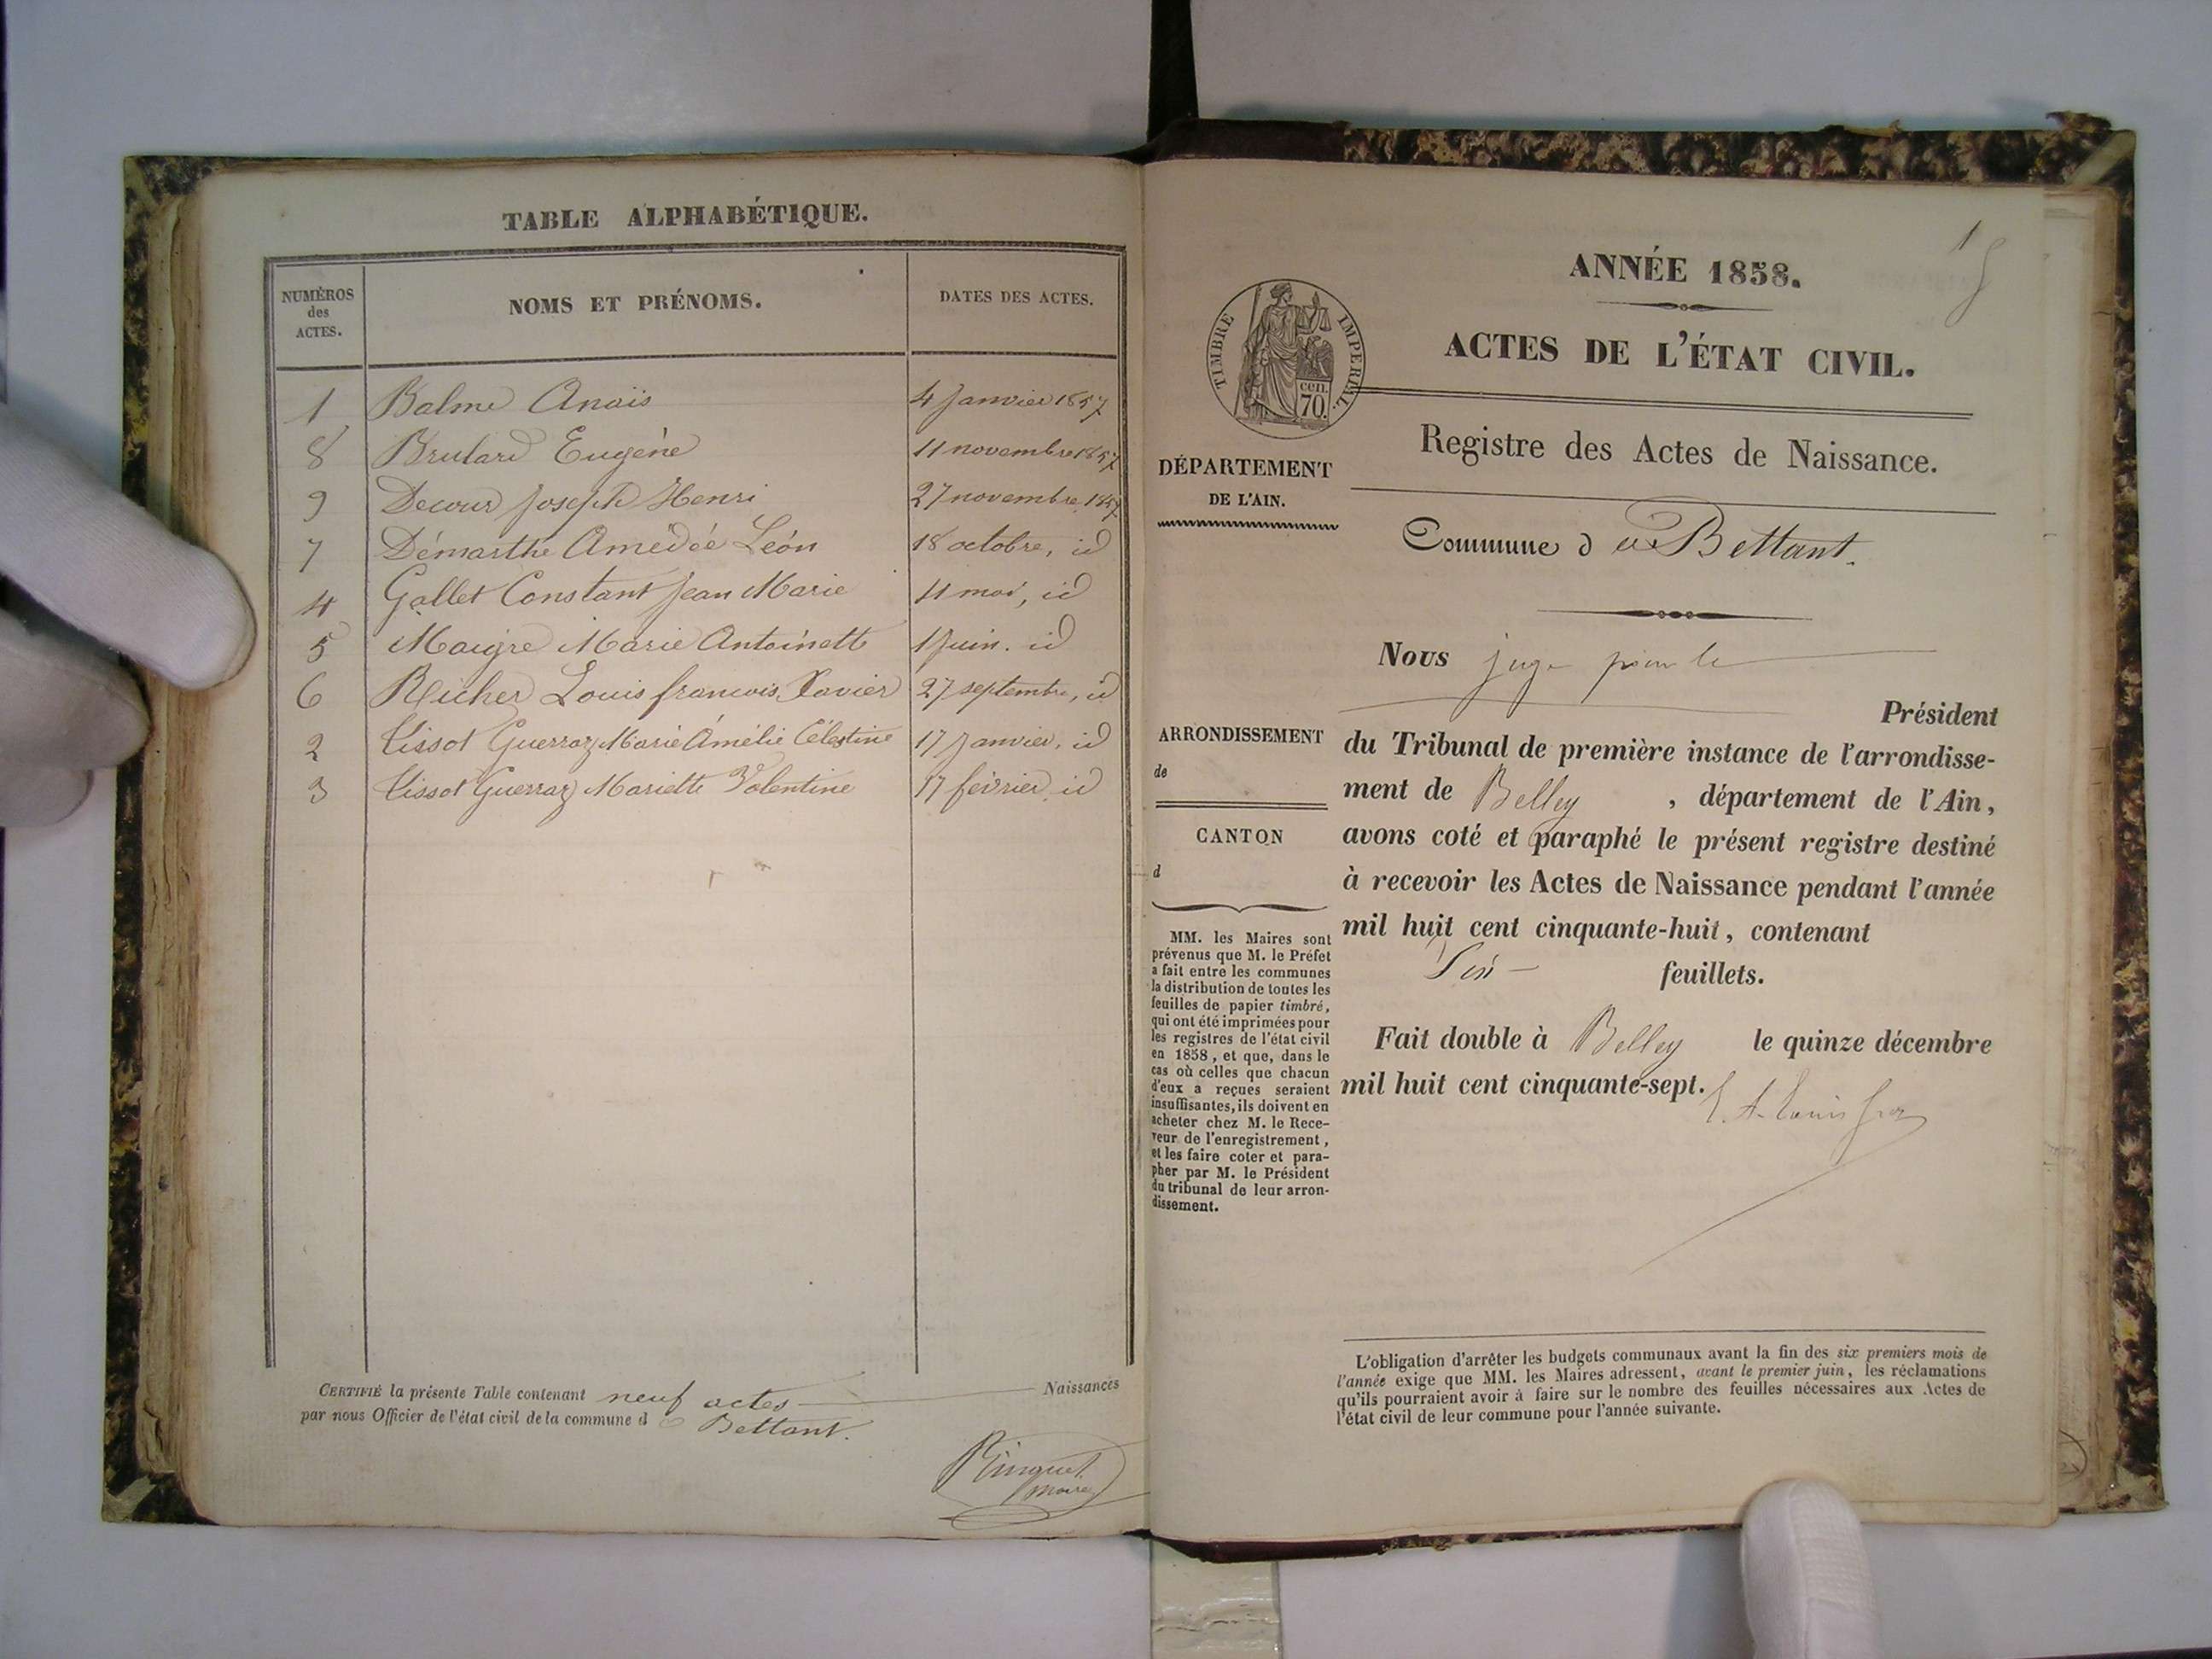 TABLE ALPHABÉTIQUE.
NUMÉROS
des
ACTES.
NOMS ET PRÉNOMS.
DATES DES ACTES.
1 Balme Anaïs 4 Janvier 1857
8 Brulard Eugène 11 novembre 1857
9 Decour Joseph Henri 27 novembre 1857
7 Démarthe Amédée Léon 18 octobre, id
4 Gallet Constant Jean Marie 11 mai, id
5 Maigre Marie Antoinette 1 Juin. id
6 Richer Louis francois Xavier 27 septembre, id
2 Tissot Guerraz Marie Amélie Célestine 17 Janvier, id
3 Tissot Guerraz Mariette Valentine 17 février id
CERTIFIÉ la présente Table contenant neuf actes Naissances
par nous Officier de l'état civil de la commune d e Bettant.
Ringuet
maire
1
ANNÉE 1858.
ACTES DE L'ÉTAT CIVIL.
TIMBRE IMPERIAL.
cen.
70.
Registre des Actes de Naissance.
DÉPARTEMENT
DE L'AIN.
Commune d e Bettant.
Nous juge pour le
Président
ARRONDISSEMENT
de
CANTON
d
du Tribunal de première instance de l'arrondisse-
ment de Belley, département de l'Ain,
avons coté et paraphé le présent registre destiné
à recevoir les Actes de Naissance pendant l'année
mil huit cent cinquante-huit, contenant
feuillets.
Fait double à Belley le quinze décembre
mil huit cent cinquante-sept.
MM. les Maires sont
prévenus que M. le Préfet
a fait entre les communes
la distribution de toutes les
feuilles de papier timbré,
qui ont été imprimées pour
les registres de l'état civil
en 1858, et que, dans le
cas où celles que chacun
d'eux a reçues seraient
insuffisantes, ils doivent en
acheter chez M. le Rece-
veur de l'enregistrement,
et les faire coter et para-
pher par M. le Président
du tribunal de leur arron-
dissement.
L'obligation d'arrêter les budgets communaux avant la fin des six premiers mois de
l'année exige que MM. les Maires adressent, avant le premier juin, les réclamations
qu'ils pourraient avoir à faire sur le nombre des feuilles nécessaires aux Actes de
l'état civil de leur commune pour l'année suivante.